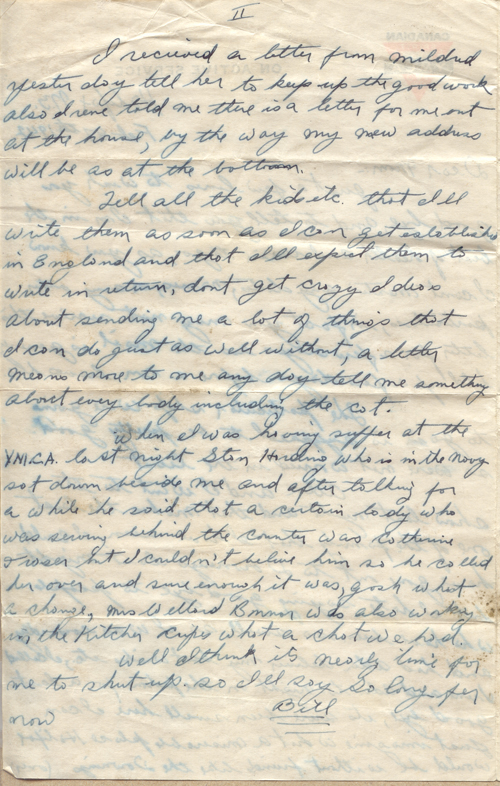 II
I recieved a letter from mildred
yester day tell her to keep up the good work
also Irene told me there is a letter for me out
at the house, by the way my new address
will be as at the bottom.
Tell all the kids etc. that I'll
write them as soon as I can get established
in England and that I'll expect them to
write in return, dont get crazy Ideas
about sending me a lot of things that
I can do just as well without, a letter
means more to me any day tell me something
about every body including the cat.
When I was having supper at the
YMCA. last night Stan who is in the navy
sat down beside me and after talking for
a while he said that a certain lady who
was serving behind the counter was Catherine
but I couldn't belive him so he called
her over and sure enough it was, gosh what
a change, mrs Willard was also working
in the Kitchen what a chat we had.
Well I think its nearly time for
me to shut up. so I'll say so long for
now
Bill